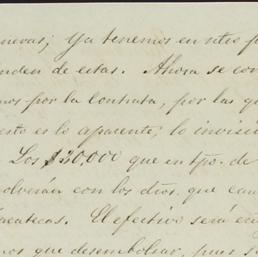 nevas; Ya tenemos en ntro p
nden de estas. Ahora se con
nos por la Contrata, por las qu
esto es lo aparente, lo invisi
Los $20,000 que en tpo. de
olverán con los dros. que cau
acatecas. El efectivo será en
nos que desembolsar, pues s